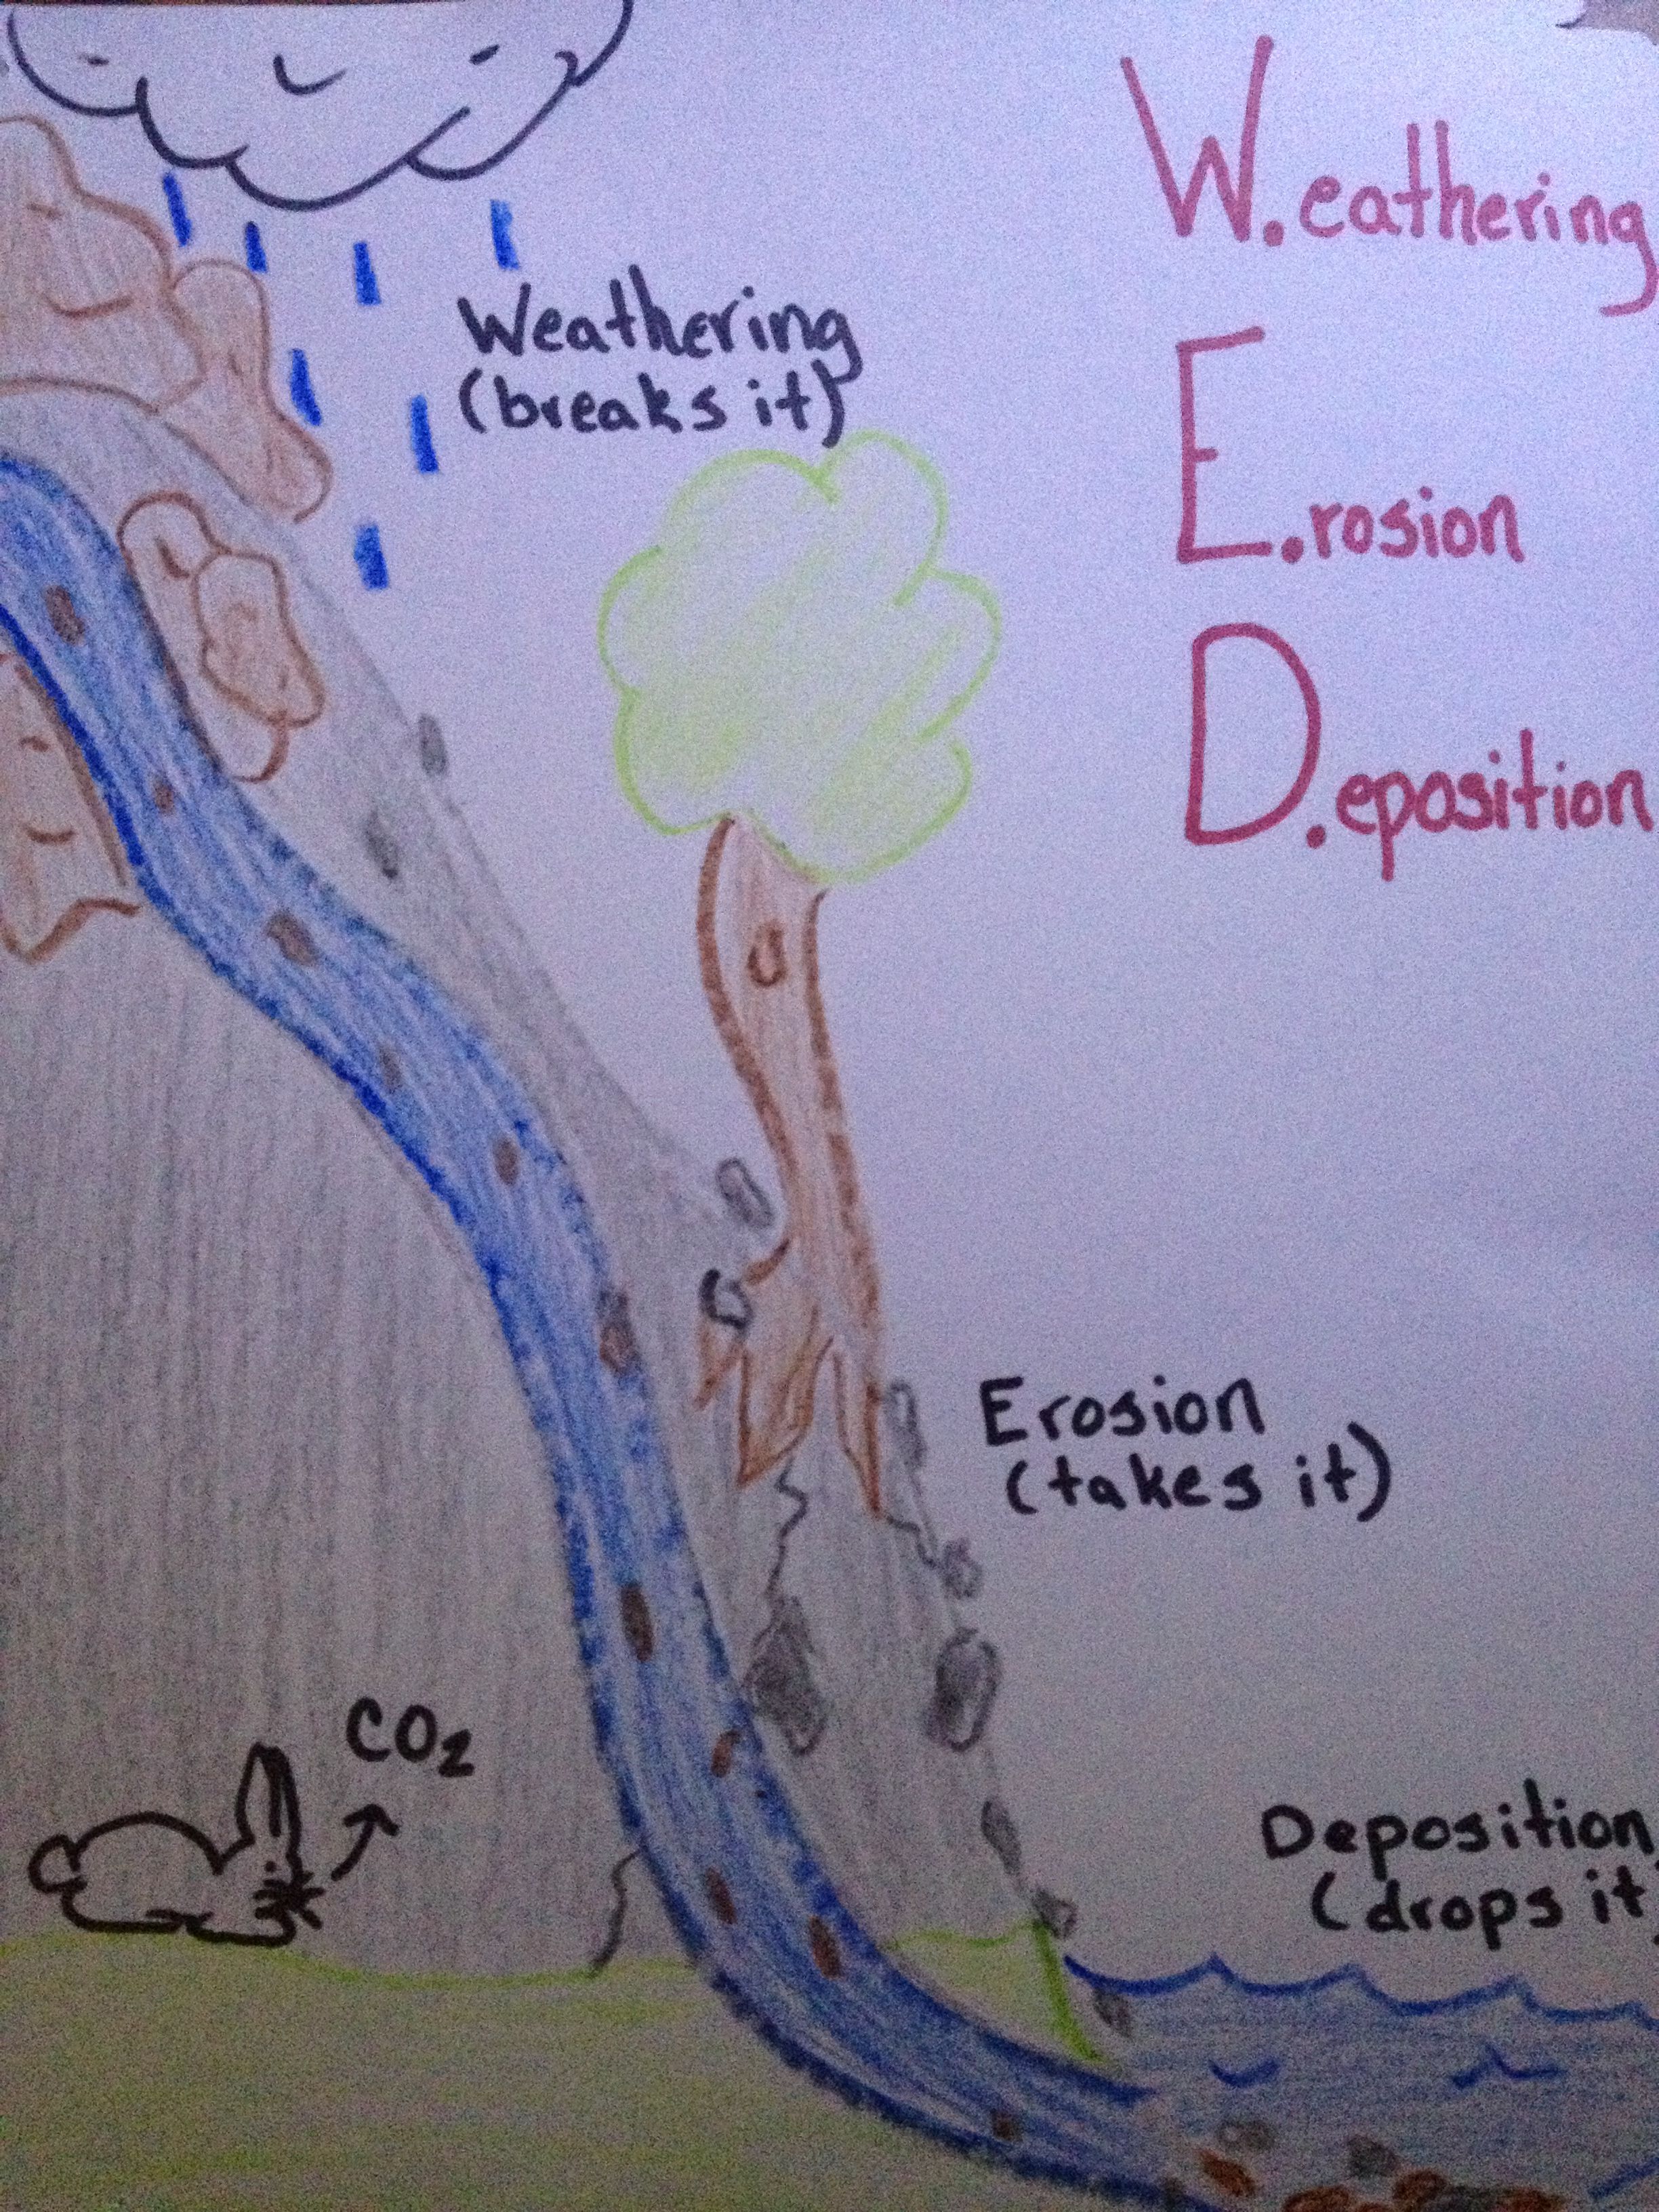 W.eathering
E.rosion
D.eposition
Weathering
(breaks it)
Erosion
(takes it)
CO₂
Deposition
(drops it